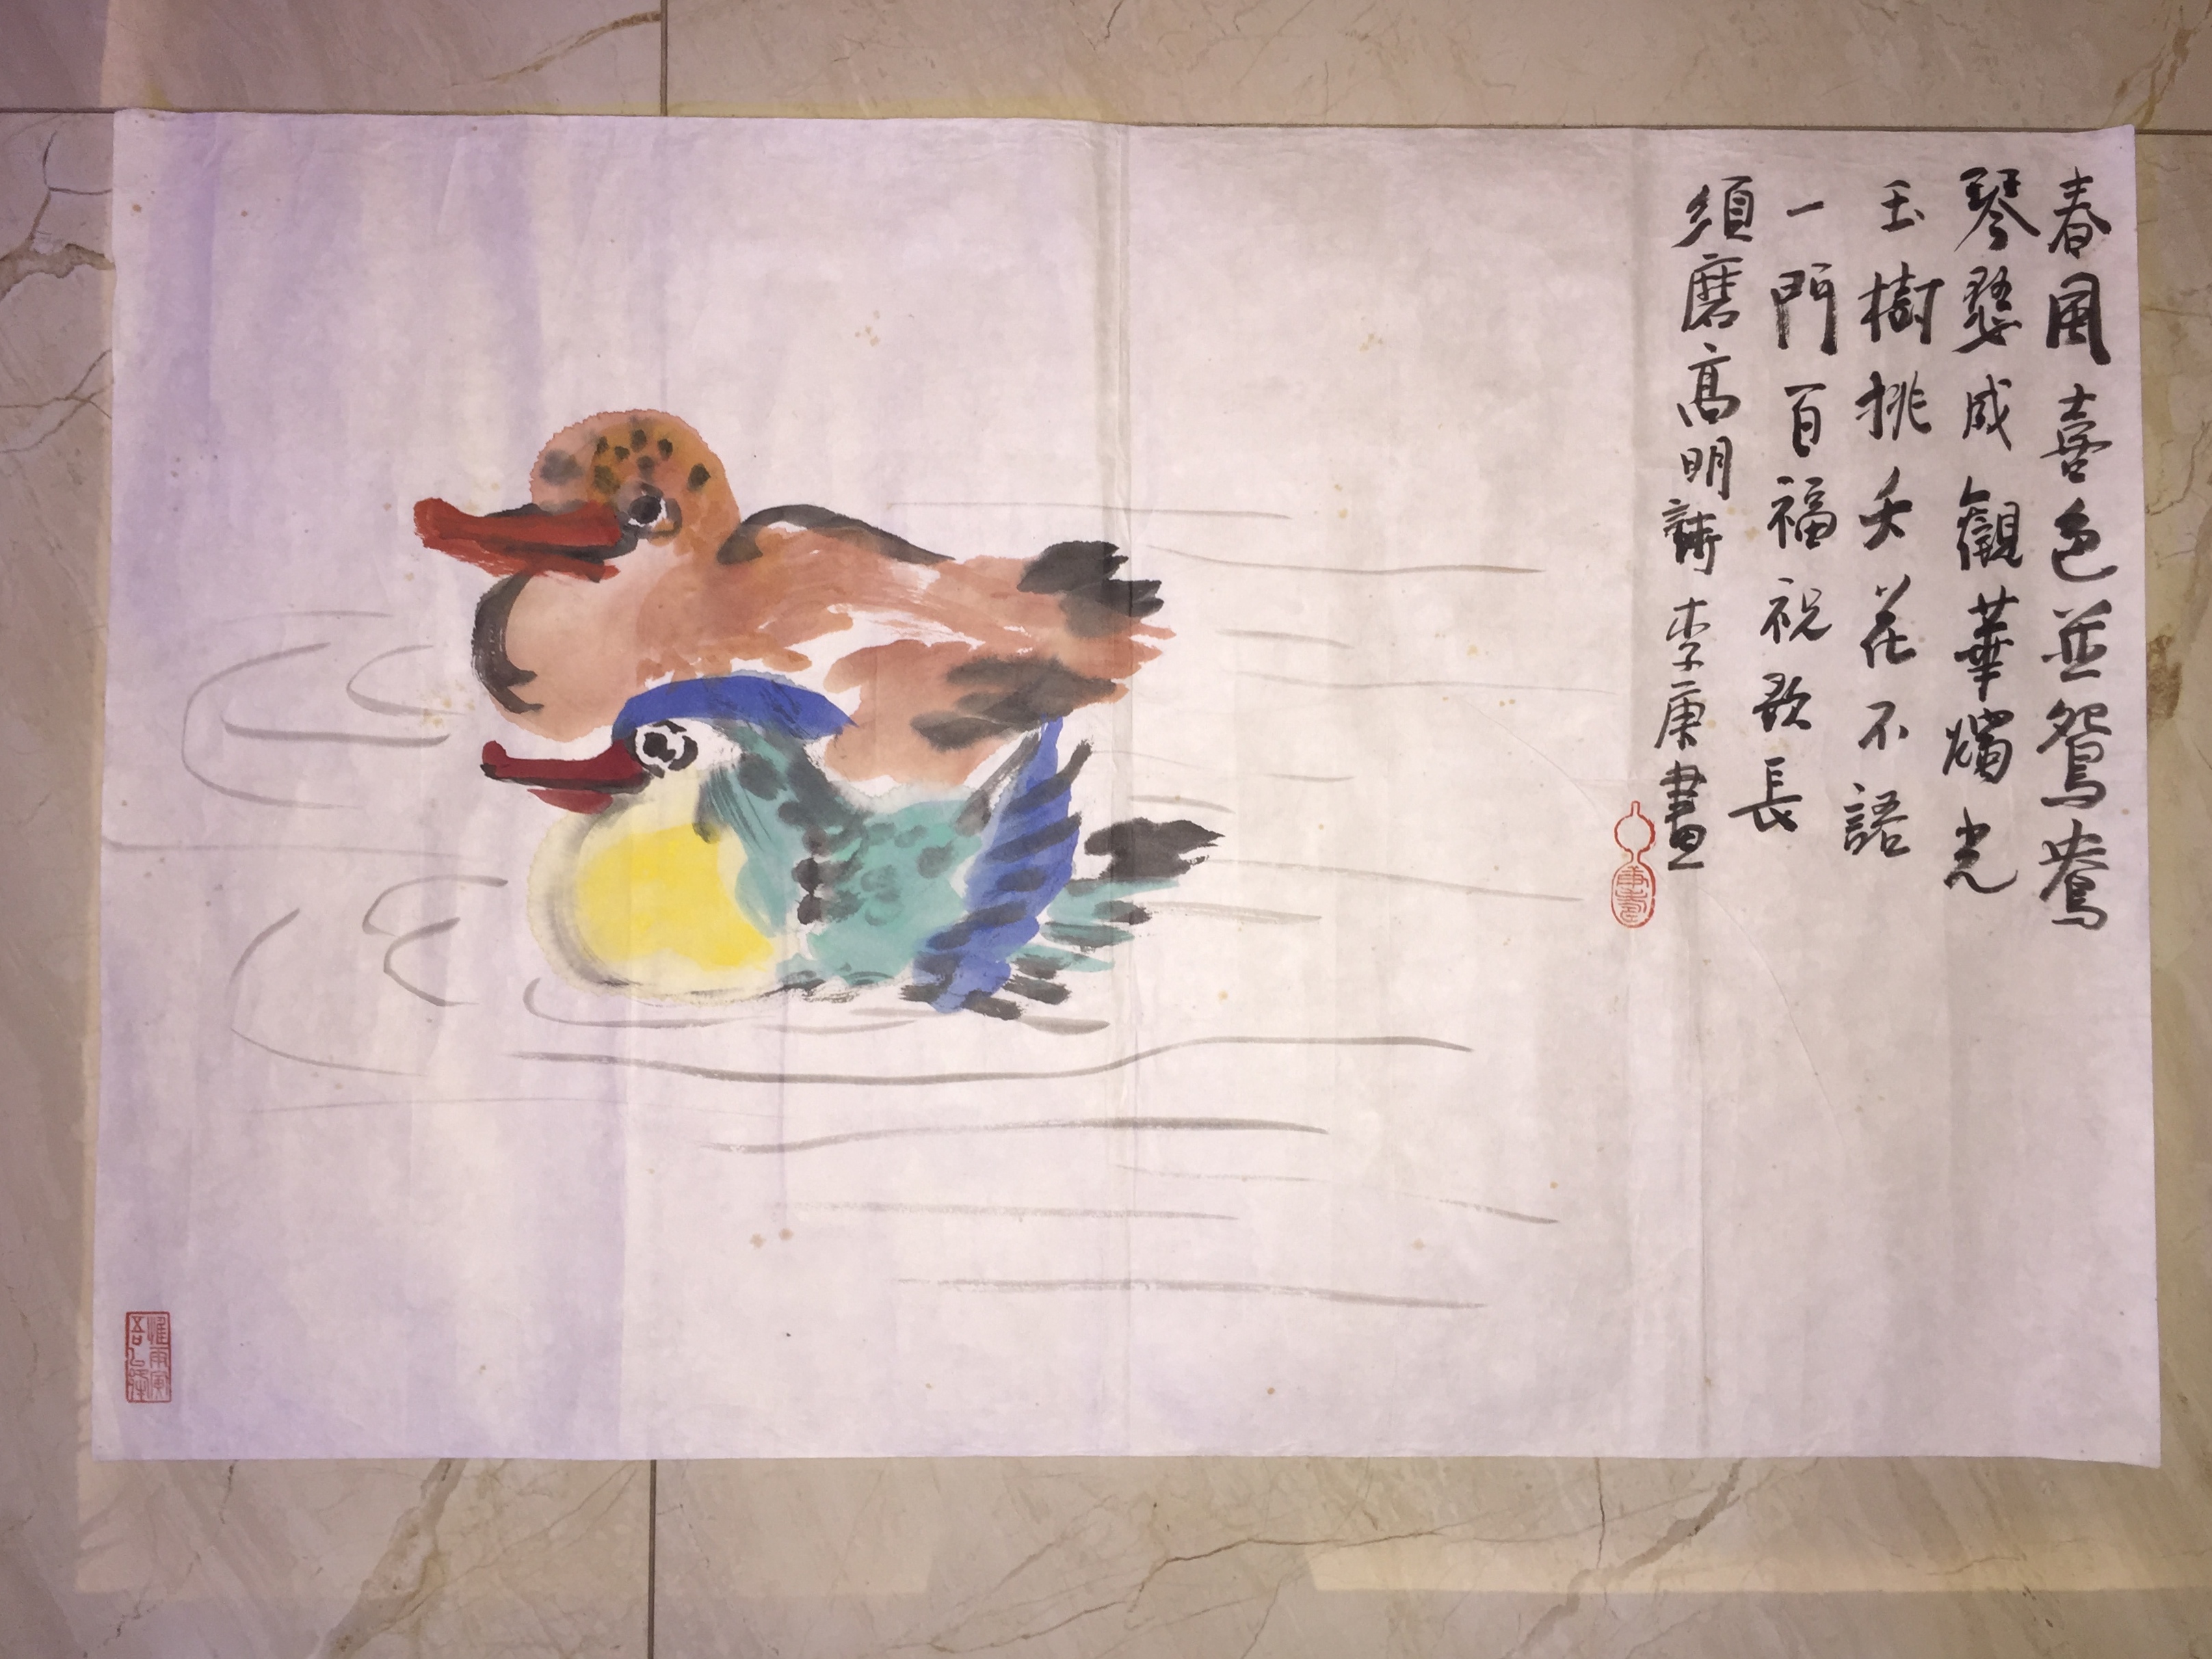 春風喜色並鴛鴦
琴瑟成觀華燭光
玉樹挑夭花不語
一門百福祝歌長
須磨高明詩 李庚畫